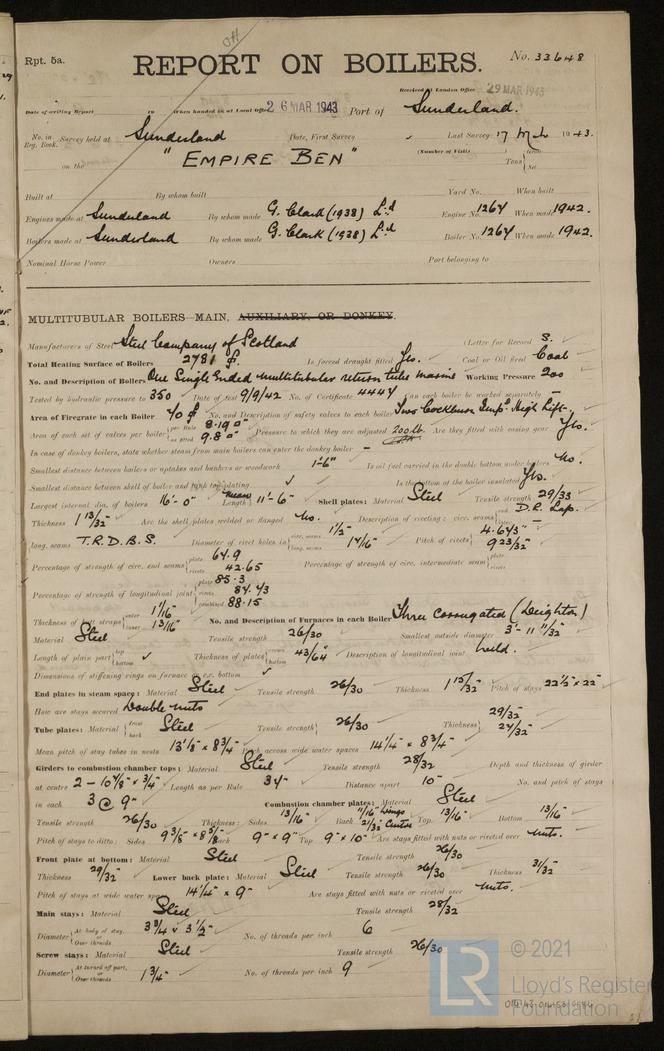 Rpt. 5a.
REPORT ON BOILERS.
No. 33648
Received at London Office 29 MAR 1943
Date of writing Report 19 When handed in at Local Office 26 MAR 1943 Port of Sunderland.
No. in Reg. Book. Survey held at Sunderland Date, First Survey Last Survey 17 Mch 1943.
on the "EMPIRE BEN" (Number of Visits) Tons Gross Net
Built at By whom built Yard No. When built
Engines made at Sunderland By whom made G. Clark (1938) Ld Engine No. 1264 When made 1942.
Boilers made at Sunderland By whom made G. Clark (1938) Ld Boiler No. 1264 When made 1942.
Nominal Horse Power Owners Port belonging to
MULTITUBULAR BOILERS—MAIN, AUXILIARY, OR DONKEY.
Manufacturers of Steel Steel Company of Scotland (Letter for Record S.
Total Heating Surface of Boilers 2781 Is forced draught fitted Yes. Coal or Oil fired Coal
No. and Description of Boilers One Single Ended multitubular return tube marine Working Pressure 200
Tested by hydraulic pressure to 350 Date of test 9/9/42 No. of Certificate 4447 Can each boiler be worked separately
Area of Firegrate in each Boiler 70 No. and Description of safety valves to each boiler Two Cockburn Impd High Lift.
Area of each set of valves per boiler per Rule 8.19 as fitted 9.8 Pressure to which they are adjusted 200 lb. Are they fitted with easing gear Yes.
In case of donkey boilers, state whether steam from main boilers can enter the donkey boiler —
Smallest distance between boilers or uptakes and bunkers or woodwork 1'-6" Is oil fuel carried in the double bottom under boilers No.
Smallest distance between shell of boiler and tank top plating Is the bottom of the boiler insulated Yes.
Largest internal dia. of boilers 16'-0" Length mean 11'-6" Shell plates: Material Steel Tensile strength 29/33
Thickness 1 13/32" Are the shell plates welded or flanged No. Description of riveting: circ. seams end D.R. Lap. inter. —
long. seams T.R.D.B.S. Diameter of rivet holes in circ. seams 1 1/2" long. seams 1 7/16" Pitch of rivets 4.643" 9 23/32"
Percentage of strength of circ. end seams plate 64.9 rivets 42.65 Percentage of strength of circ. intermediate seam plate rivets
Percentage of strength of longitudinal joint plate 85.3 rivets 84.43 combined 88.15
Thickness of butt straps outer 1 1/16" inner 1 3/16" No. and Description of Furnaces in each Boiler Three corrugated (Deighton)
Material Steel Tensile strength 26/30 Smallest outside diameter 3'-11 11/32"
Length of plain part top bottom Thickness of plates crown bottom 43/64" Description of longitudinal joint Weld.
Dimensions of stiffening rings on furnace or c.c. bottom
End plates in steam space: Material Steel Tensile strength 26/30 Thickness 1 15/32" Pitch of stays 22 1/2" x 22"
How are stays secured Double nuts
Tube plates: Material front back Steel Tensile strength 26/30 Thickness 29/32" 27/32"
Mean pitch of stay tubes in nests 13 1/8" x 8 3/4" Pitch across wide water spaces 14 1/4" x 8 3/4"
Girders to combustion chamber tops: Material Steel Tensile strength 28/32 Depth and thickness of girder
at centre 2 – 10 5/8" x 3/4" Length as per Rule 34" Distance apart 10" No. and pitch of stays
in each 3 @ 9" Combustion chamber plates: Material Steel
Tensile strength 26/30 Thickness: Sides 13/16" Back 11/16" Wings 21/32" Centre Top 13/16" Bottom 13/16"
Pitch of stays to ditto: Sides 9 3/8" x 8 5/8" Back 9" x 9" Top 9" x 10" Are stays fitted with nuts or riveted over Nuts.
Front plate at bottom: Material Steel Tensile strength 26/30
Thickness 29/32" Lower back plate: Material Steel Tensile strength 26/30 Thickness 31/32"
Pitch of stays at wide water space 14 1/4" x 9" Are stays fitted with nuts or riveted over Nuts.
Main stays: Material Steel Tensile strength 28/32
Diameter At body of stay, or Over threads 3 3/4 x 3 1/2" No. of threads per inch 6
Screw stays: Material Steel Tensile strength 26/30
Diameter At turned off part, or Over threads 1 3/4" No. of threads per inch 9
LR © 2021
Lloyd's Register
Foundation